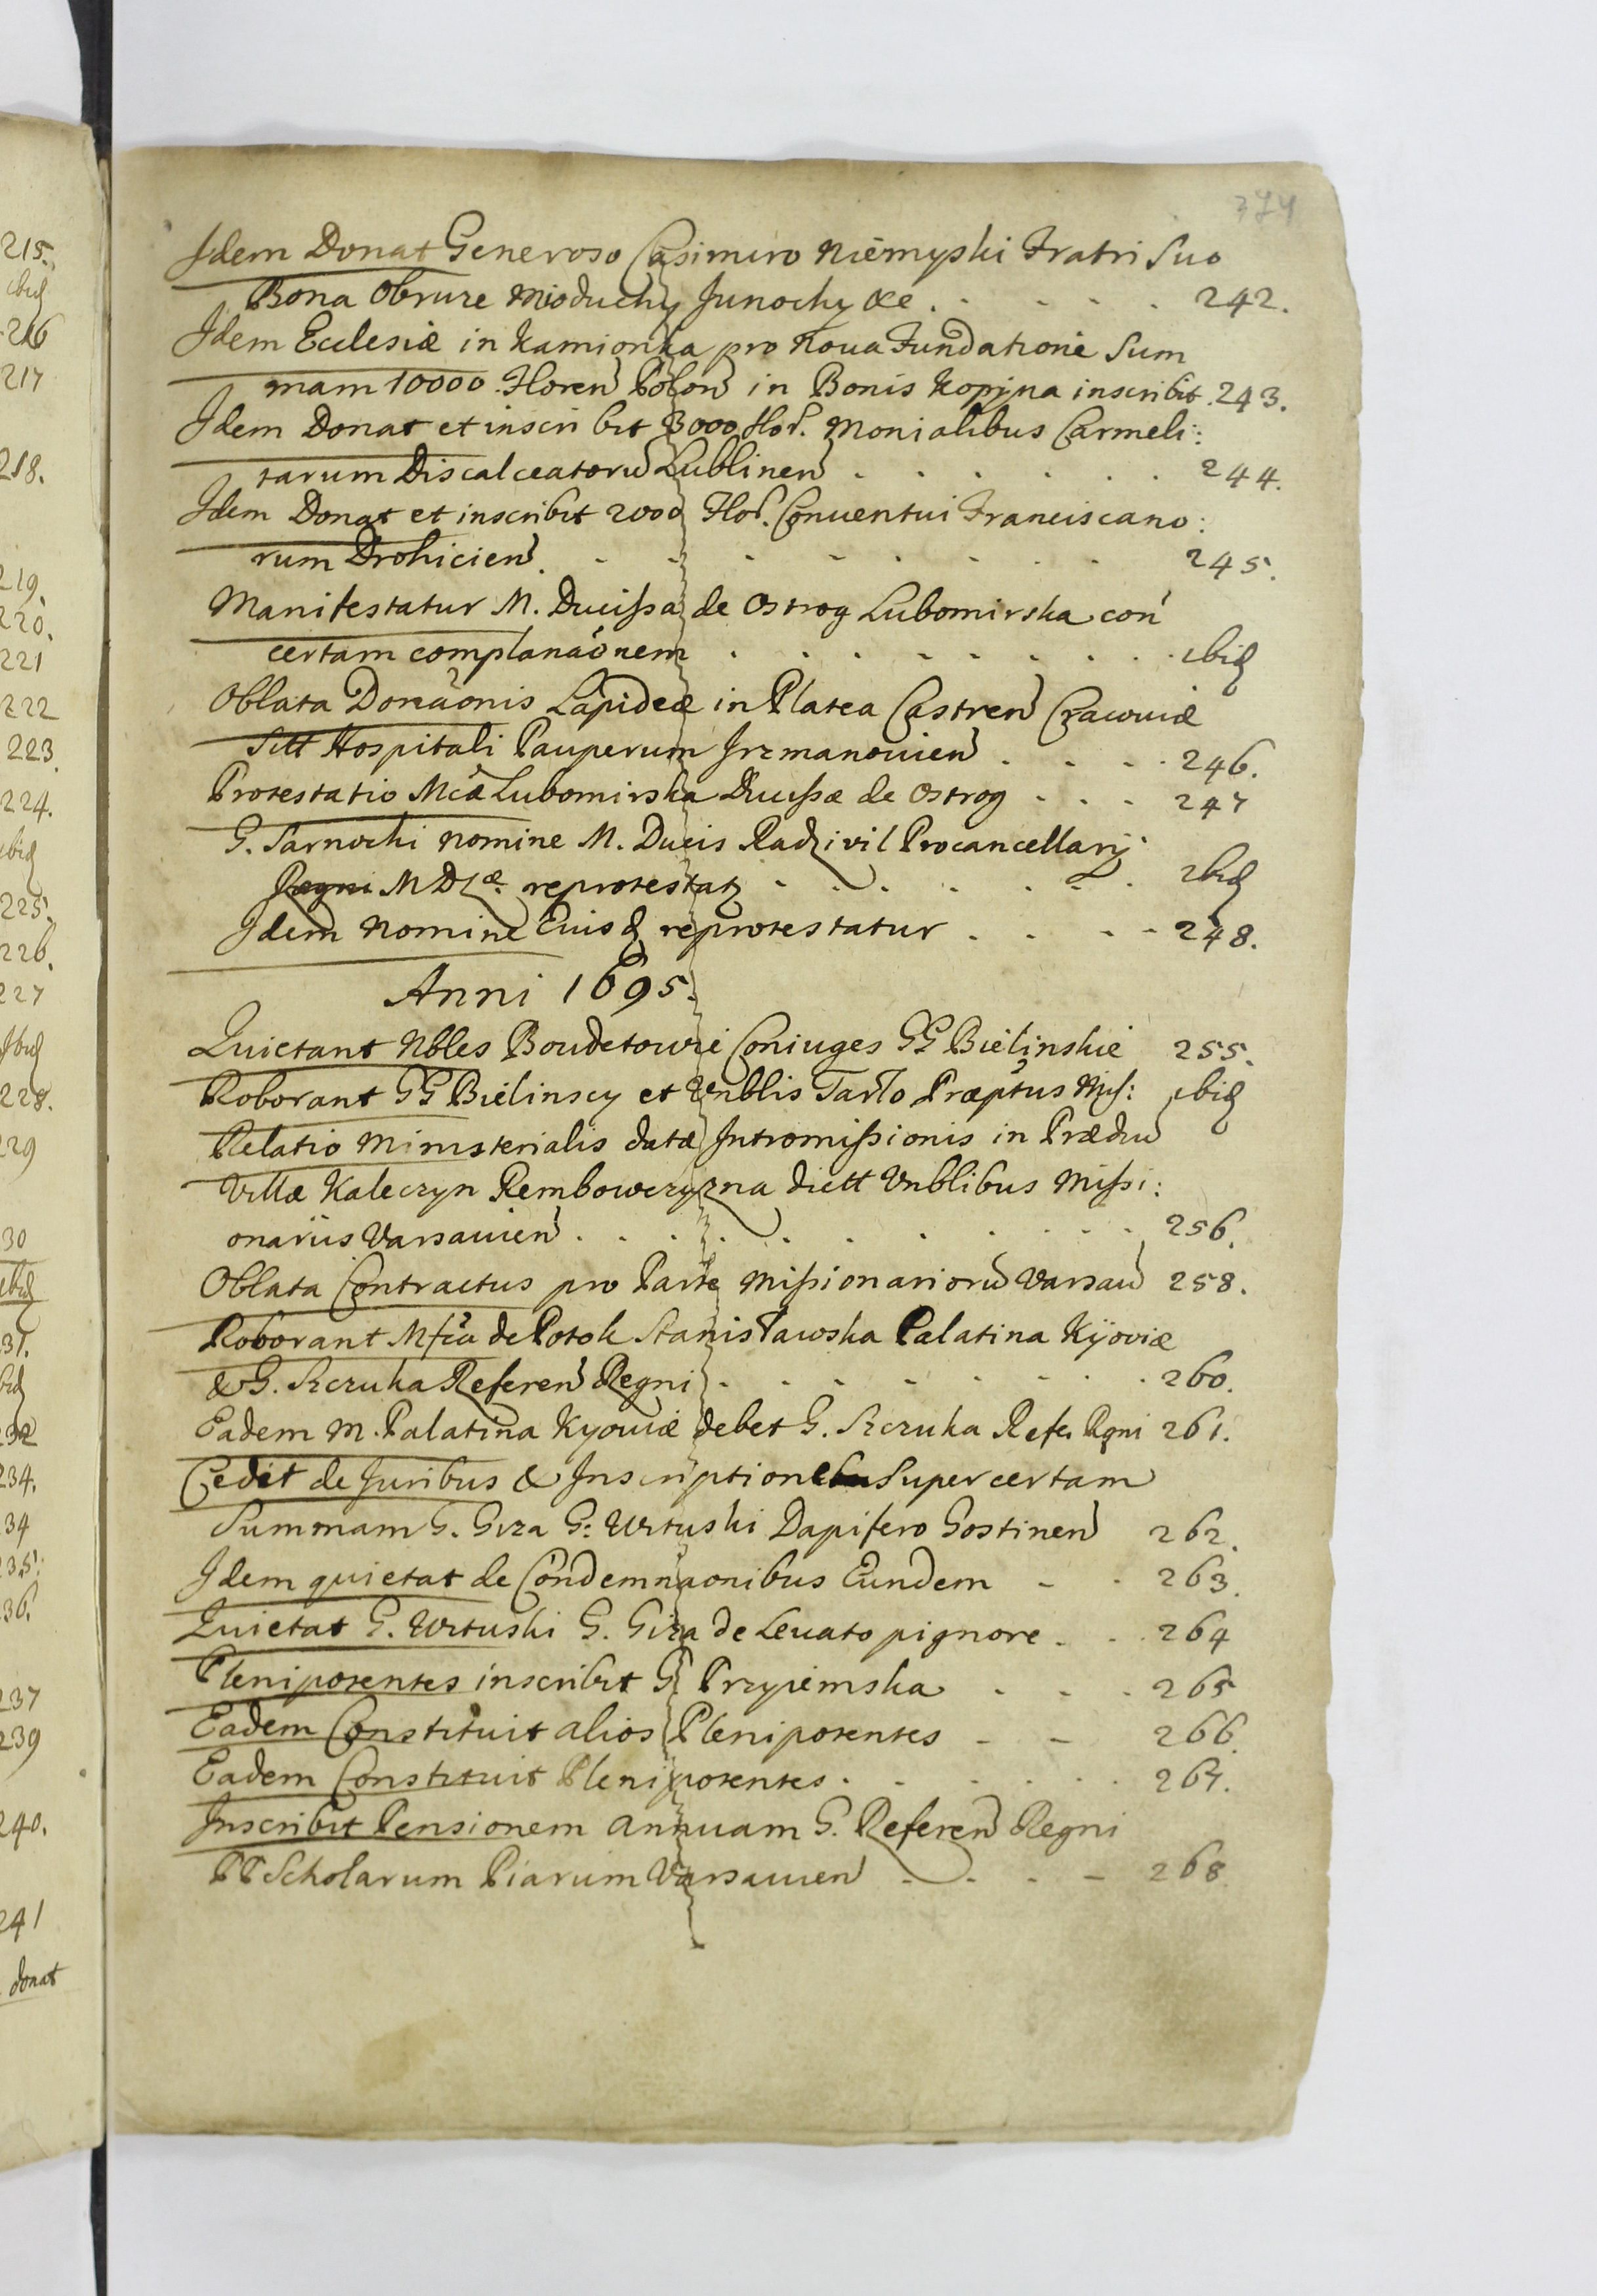 374
Idem Donat Generoso Casimiro Niemyski Fratri Suo
Bona Obrure Mioduchy Junochy &c. 242.
Idem Ecclesiæ in Kamionka pro Noua Fundatione Sum
mam 10000 Floren Polon in Bonis Kopyna inscribit 243.
Idem Donat et inscribit 3000 Flor. Monialibus Carmeli:
tarum Discalceatoru Lublinen 244.
Idem Donat et inscribit 2000 Flor. Conuentui Franciscano:
rum Drohicien 245.
Manifestatur M. Ducissa de Ostrog Lubomirska con
certam complanaonem ibid
Oblata Donaonis Lapideæ in Platea Castren Cracouiæ
Sitt Hospitali Pauperum Irzmanouien 246.
Protestatio Mcæ Lubomirska Ducissæ de Ostrog 247
G. Sarnocki nomine M. Ducis Radzivil Procancellarij
Regni M D Læ. reprotestat 2bid
Idem nomine Eiusd reprotestatur 248.
Anni 1695.
Quietant Nbles Boudetowie Coniuges GG Bielinskie 255.
Roborant GG Bielinscy et Vnblis Tarło Præptus Miss: ibid
Relatio Ministerialis datæ Intromissionis in Prædiu
Villæ Kaleczyn Rembowczyzna dictt Vnblibus Missi:
onariis Varsauien 256.
Oblata Contractus pro Parte Missionarioru Varsau 258.
Roborant Mfica de Potok Stanisławska Palatina Kijoviæ
& G. Szczuka Referen Regni 260.
Eadem M. Palatina Kyouiæ debet G. Szczuka Refer Rgni 261.
Cedit de Juribus & Inscriptione Super certam
Summam G. Giza G: Wituski Dapifero Gostinen 262.
Idem quietat de Condemnaonibus Eundem 263.
Quietat G. Wituski G. Giza de Leuato pignore 264
Plenipotentes inscribit G. Przyiemska 265
Eadem Constituit alios Plenipotentes 266.
Eadem Constituit Plenipotentes 267.
Inscribit Pensionem annuam G. Referen Regni
PP Scholarum Piarum Varsauien 268